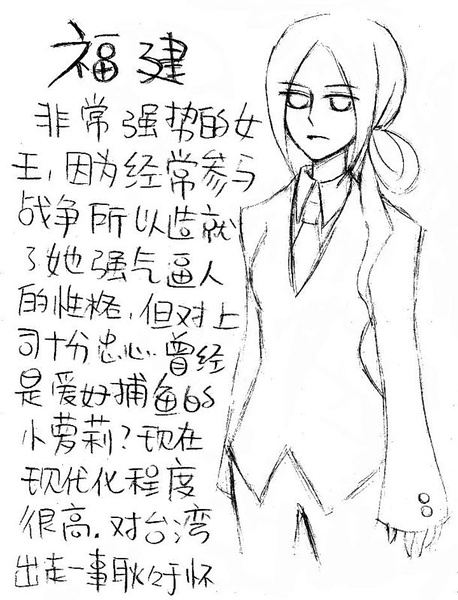 福建
非常强势的女
王,因为经常参与
战争所以造就
了她强气逼人
的性格,但对上
司十分忠心.曾经
是爱好捕鱼的
小萝莉?现在
现代化程度
很高.对台湾
出走一事耿々于怀